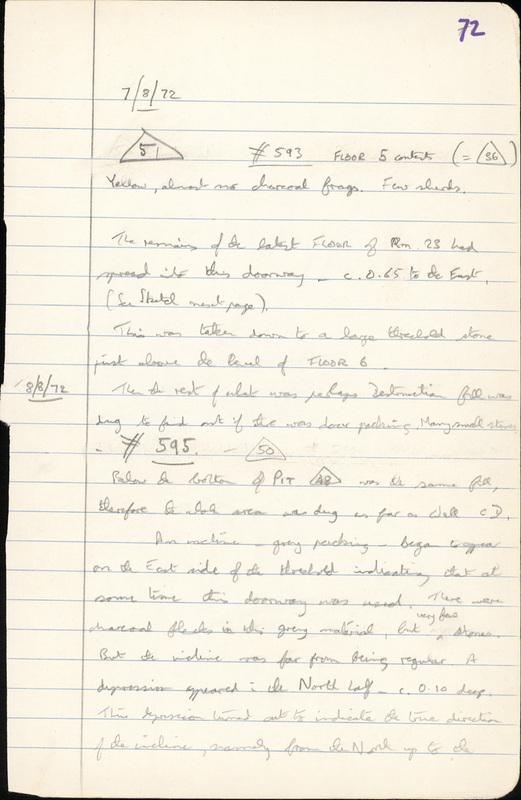 72
7/8/72
51 # 593 FLOOR 5 contents (= 36)
Yellow, almost no charcoal frags. Few sherds.
The remains of the latest FLOOR of Rm. 23 had
spread into this doorway – c. 0.65 to the East.
(See Sketch next page).
This was taken down to a large threshold stone
just above the level of FLOOR 6.
8/8/72 Then the rest of what was perhaps Destruction fill was
dug to find out if there was door packing. Many small stones
- # 595. - 50
Below the bottom of PIT 48 was the same fill,
therefore the whole area was dug as far as Wall CD.
An incline – grey packing – began to appear
on the East side of the threshold indicating that at
some time this doorway was used. There were
charcoal flecks in this grey material, but very few stones.
But the incline was far from being regular. A
depression appeared in the North half – c. 0.10 deep.
This depression turned out to indicate the true direction
of the incline, namely from the North up to the